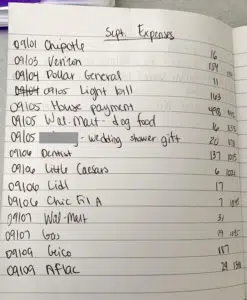 Sept. Expenses
09/01 Chipotle 16
09/03 Verizon 154
09/04 Dollar General 11
09/05 Light bill 163
09/05 House payment 498
09/05 Wal-Mart- dog food 16
09/05 - wedding shower gift 20
09/06 Dentist 137
09/06 Little Caesars 6
09/06 Lidl 17
09/06 Chic Fil A 7
09/07 Wal-Mart
09/07 Gas 19
09/09 Geico 187
09/09 Aflac 29